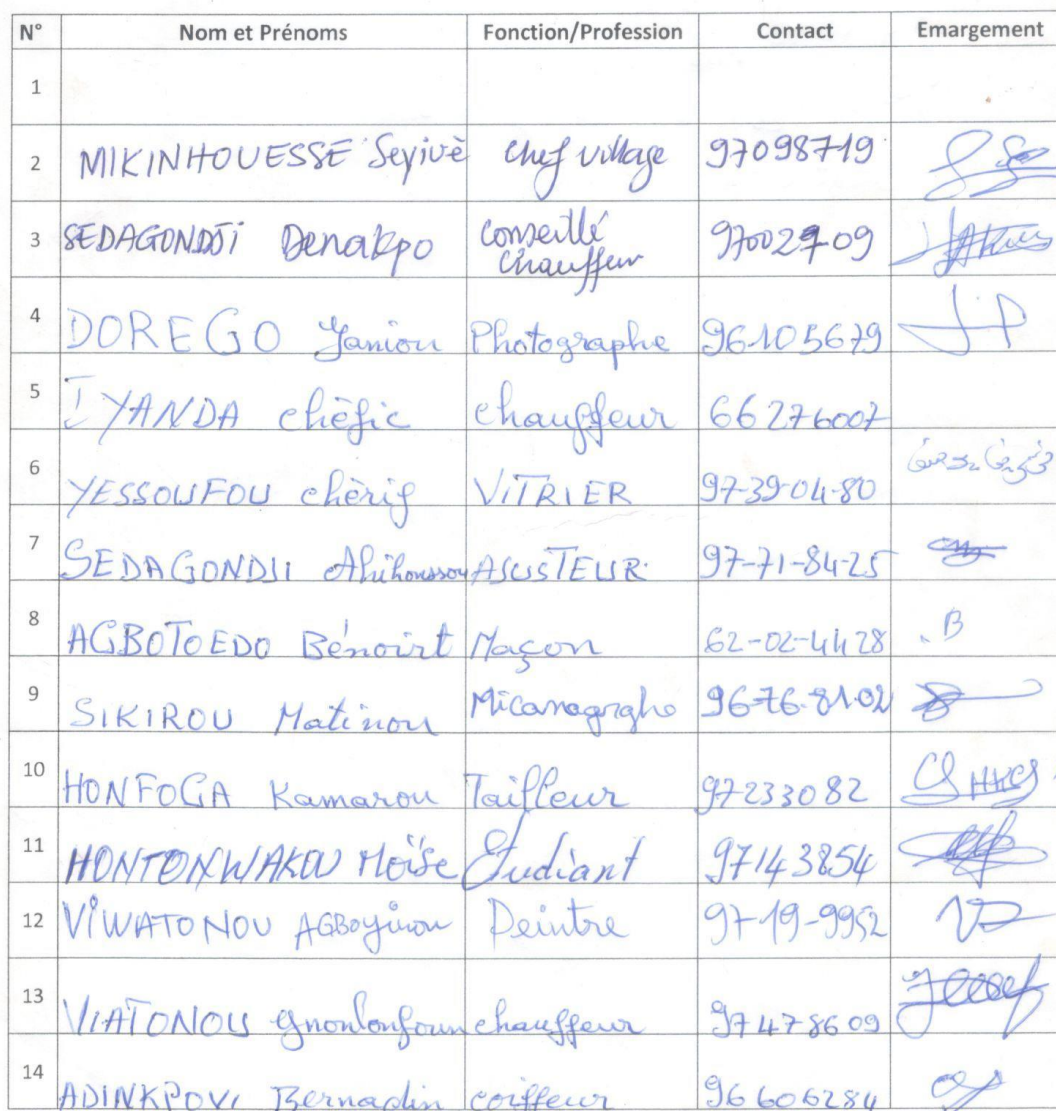 N° Nom et Prénoms Fonction/Profession Contact Emargement
1
2 MIKINHOUESSE Seyivè chef village 97098719
3 SEDAGONDJI Denakpo Conseillé
chauffeur 97002709
4 DOREGO Yaniou Photographe 96105679 J P
5 IYANDA chèfic chauffeur 66276007
6 YESSOUFOU chèrif VITRIER 97-39-04-80
7 SEDAGONDJI Ahihonssou 97-71-84-25
8 AGBOTOEDO Bénoirt Maçon 62-02-44 28 .B
9 SIKIROU Matinou 96-76-81-02
10 HONFOGA Kamarou Tailleur 97233082
11 HONTONWAKOU Moïse Etudiant 97143854
12 VIWATONOU Peintre 97-19-9952
13 VIATONOU gnonlonfoun chauffeur 97478609
14 ADINKPOVI Bernadin coiffeur 96606284